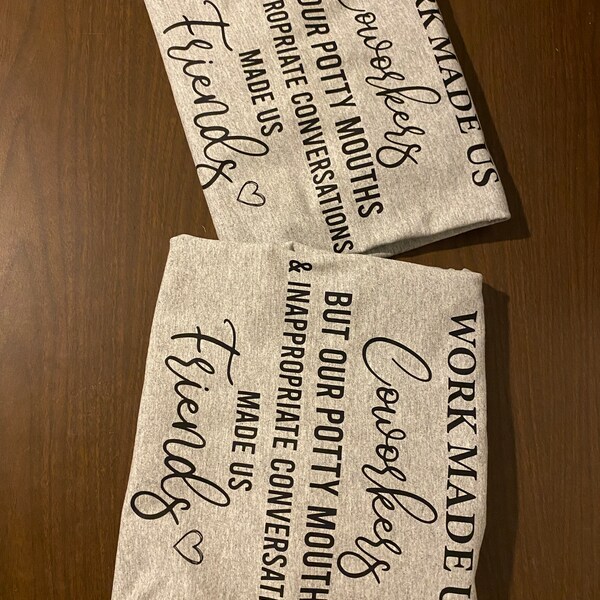 ORK MADE US
Coworkers
OUR POTTY MOUTHS
ROPRIATE CONVERSATIONS
MADE US
Friends ♡
WORK MADE U
Coworkers
BUT OUR POTTY MOUTH
& INAPPROPRIATE CONVERSATI
MADE US
Friends ♡